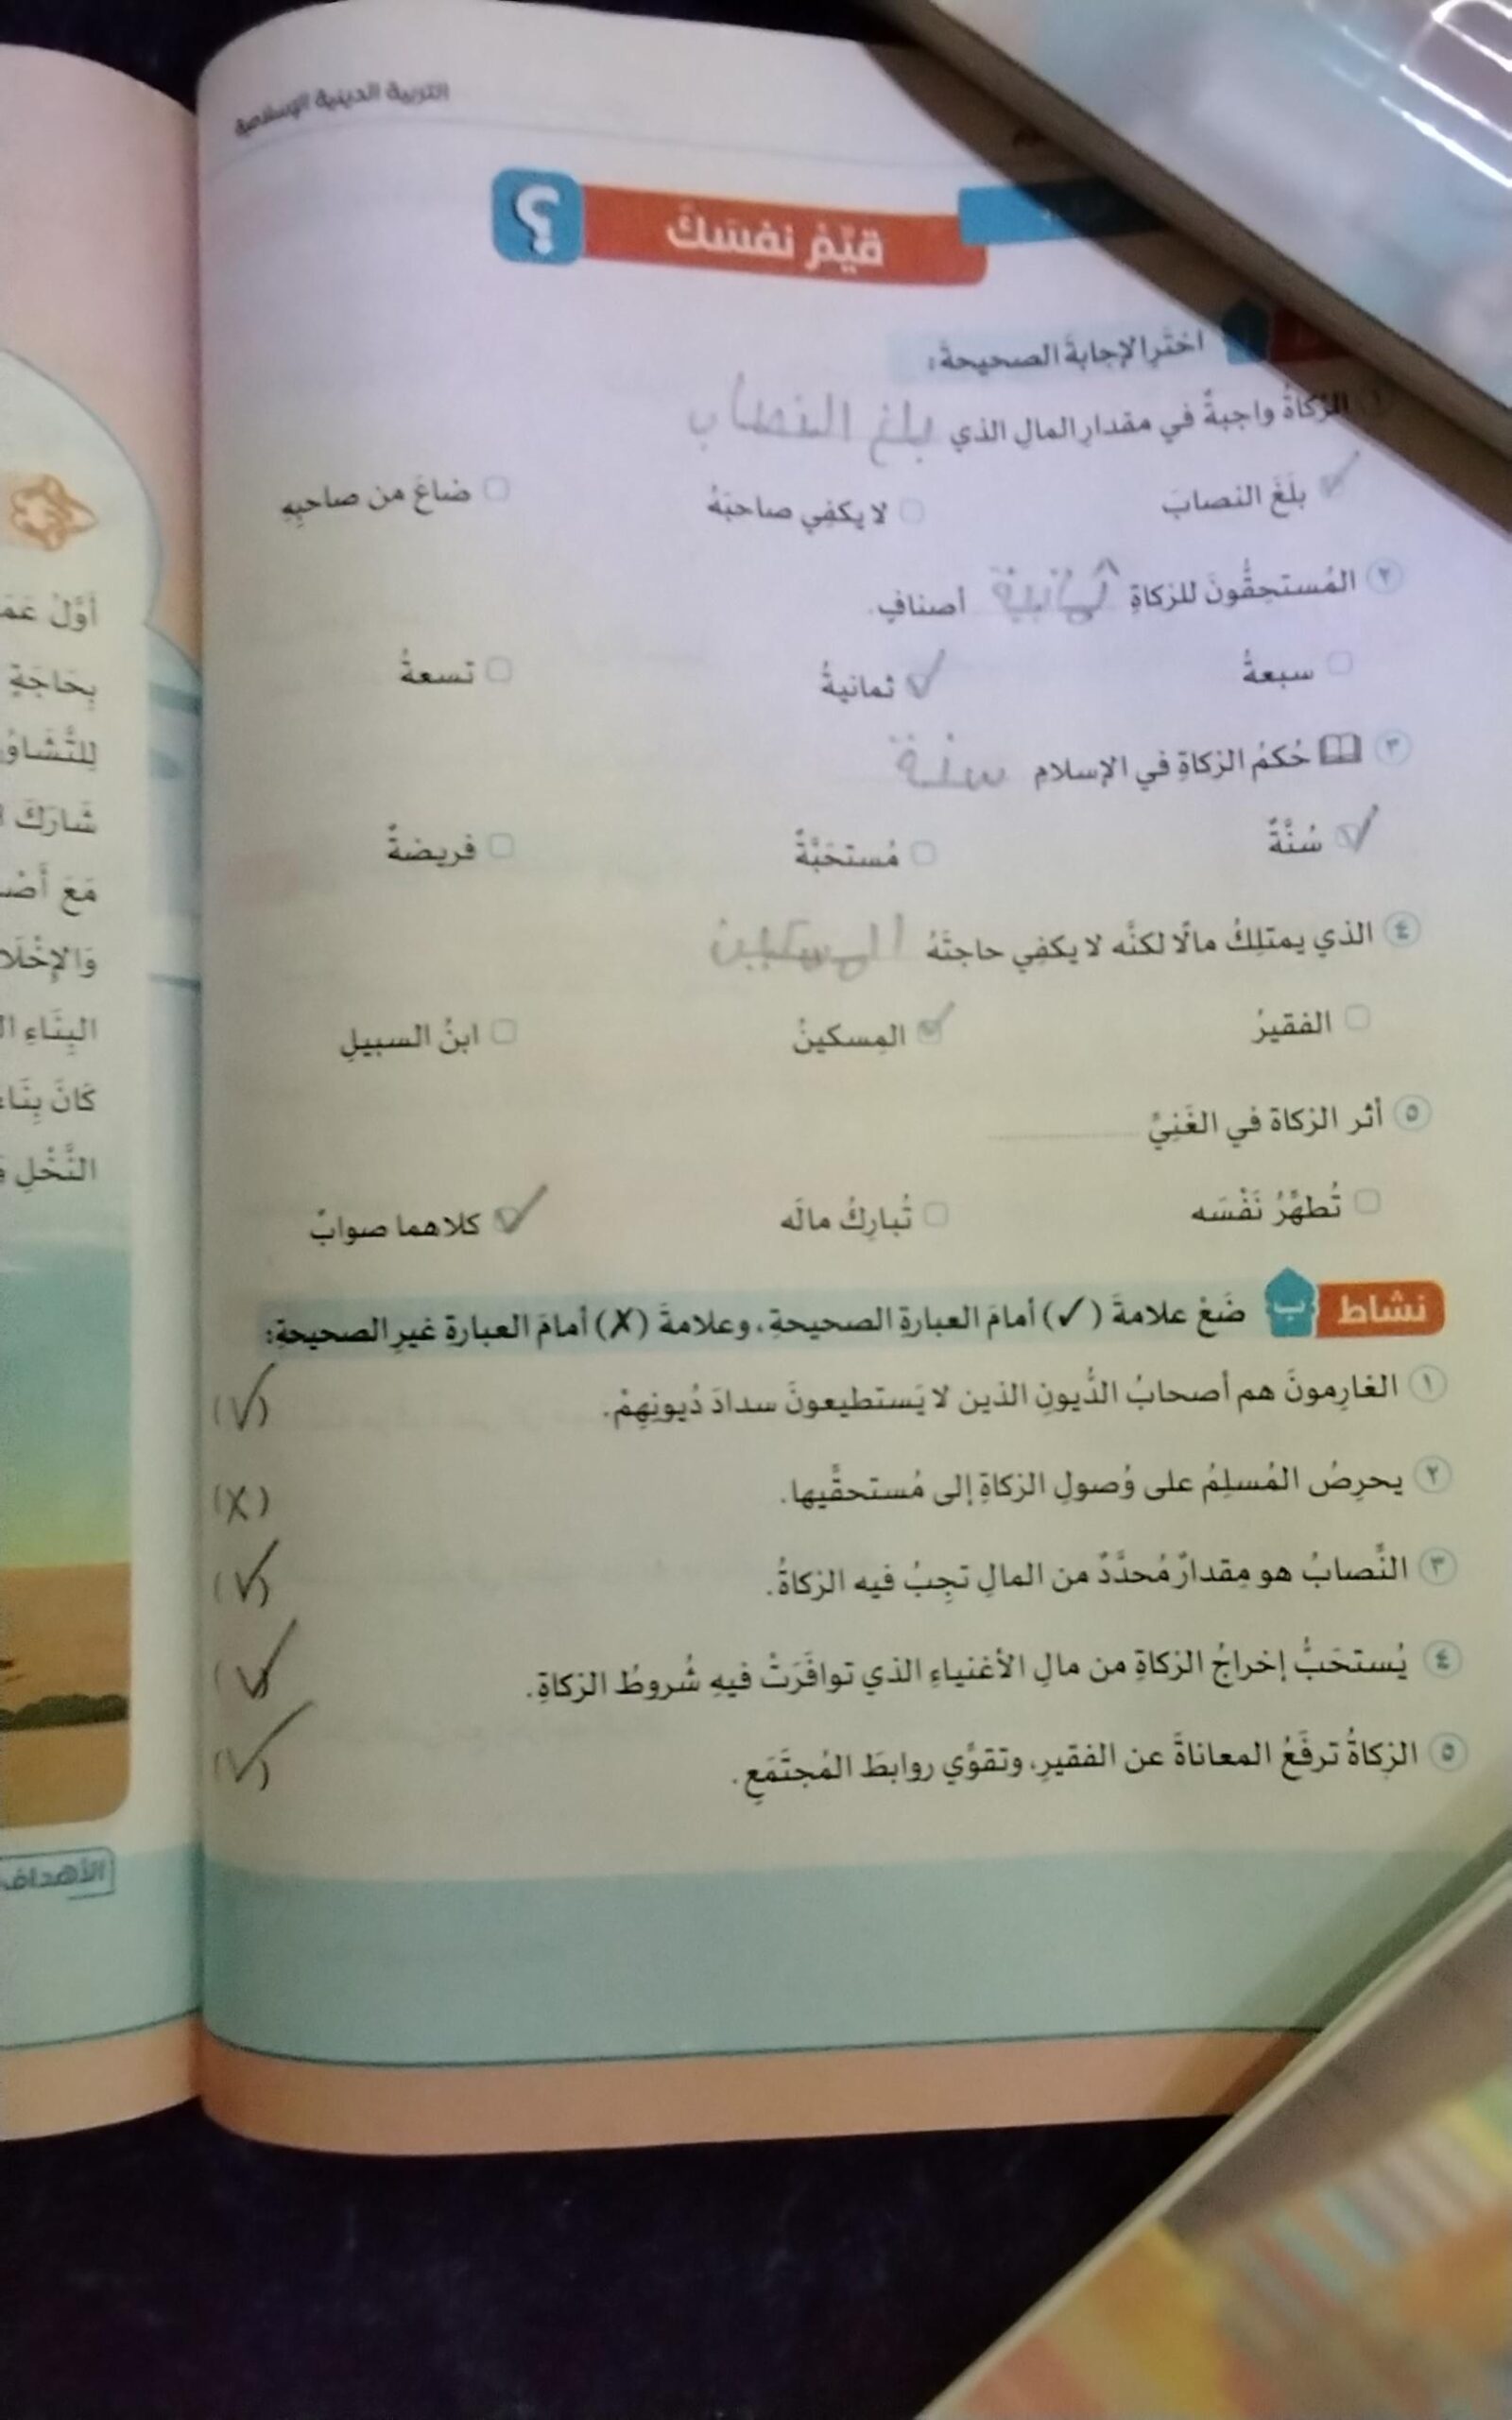 التربية الدينية الإسلامية
قيِّمْ نفسَكَ
؟
أ اختَرِ الإجابةَ الصحيحةَ:
١ الزكاةُ واجبةٌ في مقدارِ المالِ الذي بلغ النصاب
بلَغَ النصابَ لا يكفِي صاحبَهُ ضاعَ من صاحبِهِ
٢ المُستحِقُّونَ للزكاةِ ثمانية أصنافٍ.
سبعةُ ثمانيةُ تسعةُ
٣ حُكمُ الزكاةِ في الإسلامِ سنة
سُنَّةٌ مُستحَبَّةٌ فريضةٌ
٤ الذي يمتلِكُ مالًا لكنَّه لا يكفِي حاجتَهُ المسكين
الفقيرُ المِسكينُ ابنُ السبيلِ
٥ أثر الزكاة في الغَنِيِّ
تُطهِّرُ نَفْسَه تُبارِكُ مالَه كلاهما صوابٌ
نشاط ب ضَعْ علامةَ (✓) أمامَ العبارةِ الصحيحةِ، وعلامةَ (✗) أمامَ العبارةِ غيرِ الصحيحةِ:
١ الغارِمونَ هم أصحابُ الدُّيونِ الذين لا يَستطيعونَ سدادَ دُيونِهِمْ. (✓)
٢ يحرِصُ المُسلِمُ على وُصولِ الزكاةِ إلى مُستحقِّيها. (✗)
٣ النِّصابُ هو مِقدارٌ مُحدَّدٌ من المالِ تجِبُ فيه الزكاةُ. (✓)
٤ يُستحَبُّ إخراجُ الزكاةِ من مالِ الأغنياءِ الذي توافَرَتْ فيهِ شُروطُ الزكاةِ. (✓)
٥ الزكاةُ ترفَعُ المعاناةَ عن الفقيرِ، وتقوِّي روابطَ المُجتَمَعِ. (✓)
أَوَّلُ
بِحَاجَةٍ
شَارَكَ
مَعَ
البِنَاءِ
كَانَ
النَّخْلِ
الأهداف